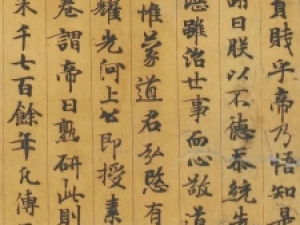 賤乎帝乃悟知是
曰朕以不德忝統先
雖治世事而心敬道
惟蒙道君弘愍有
耀光河上公即授素
卷謂帝曰熟研此則
来千七百餘年凡傳